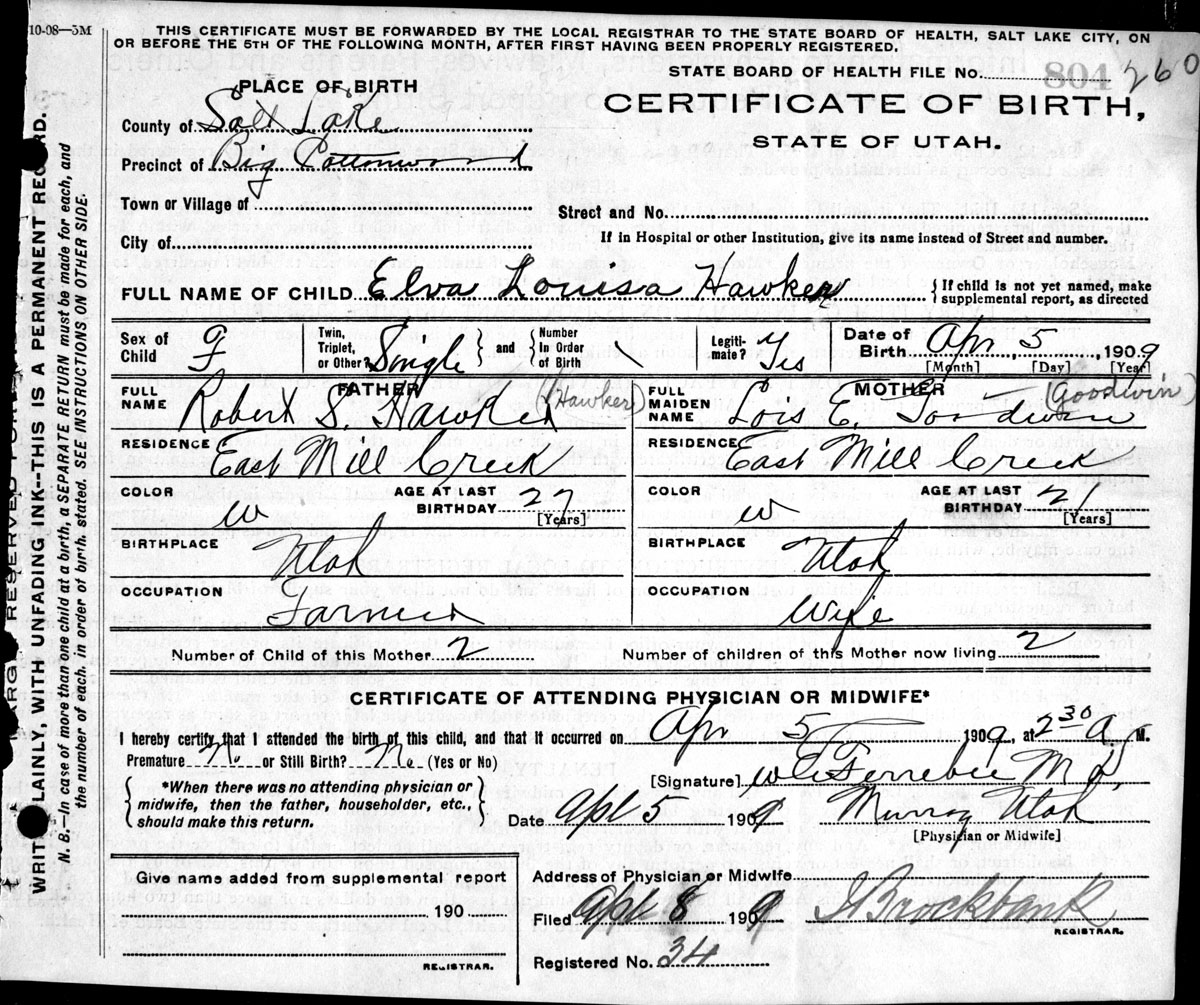 10-08—5M
THIS CERTIFICATE MUST BE FORWARDED BY THE LOCAL REGISTRAR TO THE STATE BOARD OF HEALTH, SALT LAKE CITY, ON
OR BEFORE THE 5TH OF THE FOLLOWING MONTH, AFTER FIRST HAVING BEEN PROPERLY REGISTERED.
STATE BOARD OF HEALTH FILE No. 804 260
PLACE OF BIRTH
CERTIFICATE OF BIRTH,
STATE OF UTAH.
County of Salt Lake
Precinct of Big Cottonwood
Town or Village of
Street and No.
City of
If in Hospital or other Institution, give its name instead of Street and number.
FULL NAME OF CHILD Elva Louisa Hawker
{If child is not yet named, make
supplemental report, as directed
Sex of Child
Twin, Triplet, or Other? Single } and { Number In Order of Birth
Legiti-mate? Yes
Date of Birth Apr 5, 1909
[Month] [Day] [Year]
FATHER
FULL NAME Robert S. Hawker (Hawker)
MOTHER
FULL MAIDEN NAME Lois E. Goodwin (Goodwin)
RESIDENCE East Mill Creek
RESIDENCE East Mill Creek
COLOR W AGE AT LAST BIRTHDAY 27 [Years]
COLOR W AGE AT LAST BIRTHDAY 21 [Years]
BIRTHPLACE Utah
BIRTHPLACE Utah
OCCUPATION Farmer
OCCUPATION Wife
Number of Child of this Mother 2
Number of children of this Mother now living 2
CERTIFICATE OF ATTENDING PHYSICIAN OR MIDWIFE*
I hereby certify that I attended the birth of this child, and that it occurred on Apr 5 1909, at 2 30 a M.
Premature No or Still Birth? No (Yes or No)
[Signature] W E Ferrebee M D,
{*When there was no attending physician or
midwife, then the father, householder, etc.,
should make this return.}
Date Apr 5 1909 Murray Utah
[Physician or Midwife]
Give name added from supplemental report
190
REGISTRAR.
Address of Physician or Midwife
Filed Apr 8 1909 Brockbank
REGISTRAR.
Registered No. 34
RESERVED FOR
WRITE PLAINLY, WITH UNFADING INK--THIS IS A PERMANENT RECORD.
N. B.—In case of more than one child at a birth, a SEPARATE RETURN must be made for each, and
the number of each, in order of birth, stated. SEE INSTRUCTIONS ON OTHER SIDE.